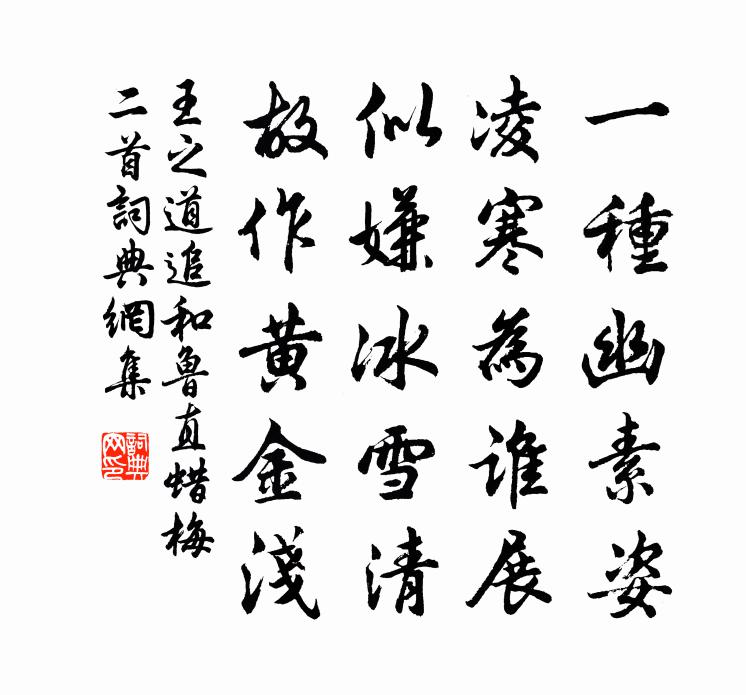 一種幽素姿
凌寒為誰展
似嫌冰雪清
故作黄金淺
王之道追和魯直蜡梅
二首詞典網集
詞典網印